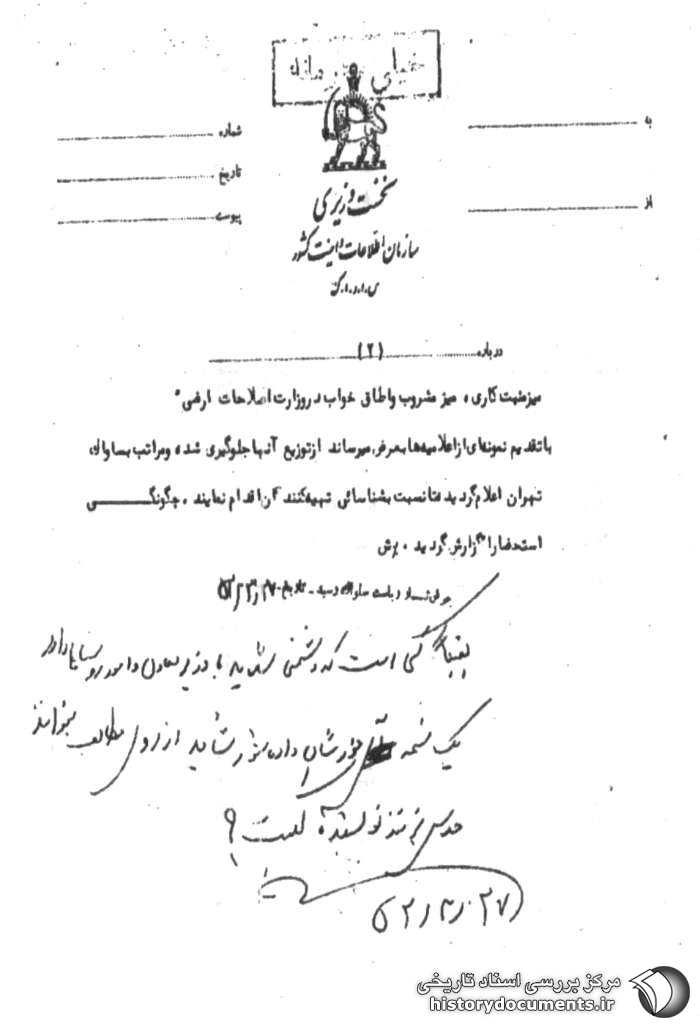 خیلی محرمانه
به
شماره
تاریخ
از
پیوست
نخست وزیری
سازمان اطلاعات و امنیت کشور
س.ا.و.ا.ک
درباره (۲)
میزمنبت کاری، میز مشروب واطاق خواب در وزارت اصلاحات ارضی"
با تقدیم نمونه‌ای از اعلامیه‌ها بعرض میرساند از توزیع آنها جلوگیری شده و مراتب بساواک
تهران اعلام گردید تا نسبت بشناسائی تهیه کنندگان اقدام نمایند. چگونگی
استحضارا" گزارش گردید.
ریاست ساواک رسید - تاریخ
یقیناً کسی است که دشمنی شدید با وزیر و معاون و امور روستاها دارد
یک نسخه خودشان داده شود شاید از روی مطالب بتوانند
حدس بزنند نویسنده کیست؟
مرکز بررسی اسناد تاریخی
historydocuments.ir